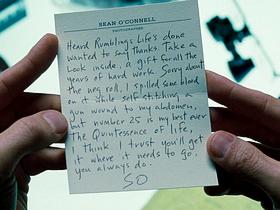 SEAN O'CONNELL
PHOTOGRAPHER
Heard Rumblings Life's done
wanted to say Thanks. Take a
Look inside, a gift for all the
years of hard work. Sorry about
the neg roll, I spilled some blood
on it while self stitching a
gun wound to my abdomen,
but number 25 is my best ever
The Quintessence of life,
I think. I trust you'll get
it where it needs to go,
you always do.
SO